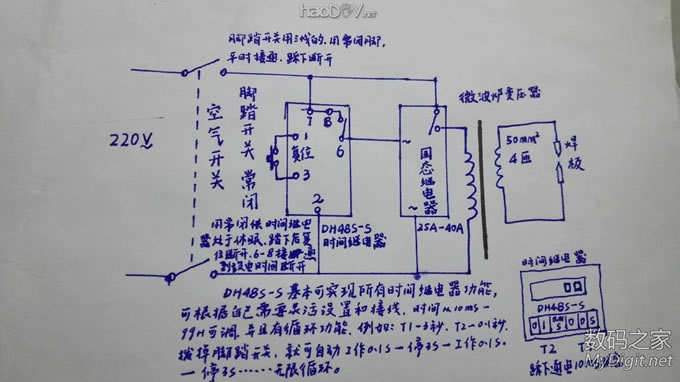 haoDIY.net
脚踏开关用三线的,用常闭脚,
平时接通,踩下断开
微波炉变压器
220V
空气开关
脚踏开关 常闭
7 8
1
复位
6
3
2
~
固态继电器
~
50mm²
4匝
焊板
DH48S-S
时间继电器
25A-40A
用常闭使时间继电
器处于休眠,踏下后复
位断开,6-8接通
到设电时间断开
时间继电器
DH48S-S
T2
DH48S-S基本可实现所有时间继电器功能,
可根据自己需要灵活设置和接线,时间从10ms-
99H可调,并且有循环功能,例如:T1-3秒,T2-0.1秒.
拨掉脚踏开关,就可自动工作0.1S一停3S一工作0.1S
一停3S……无限循环。
踩下通电
数码之家
MyDigit.net